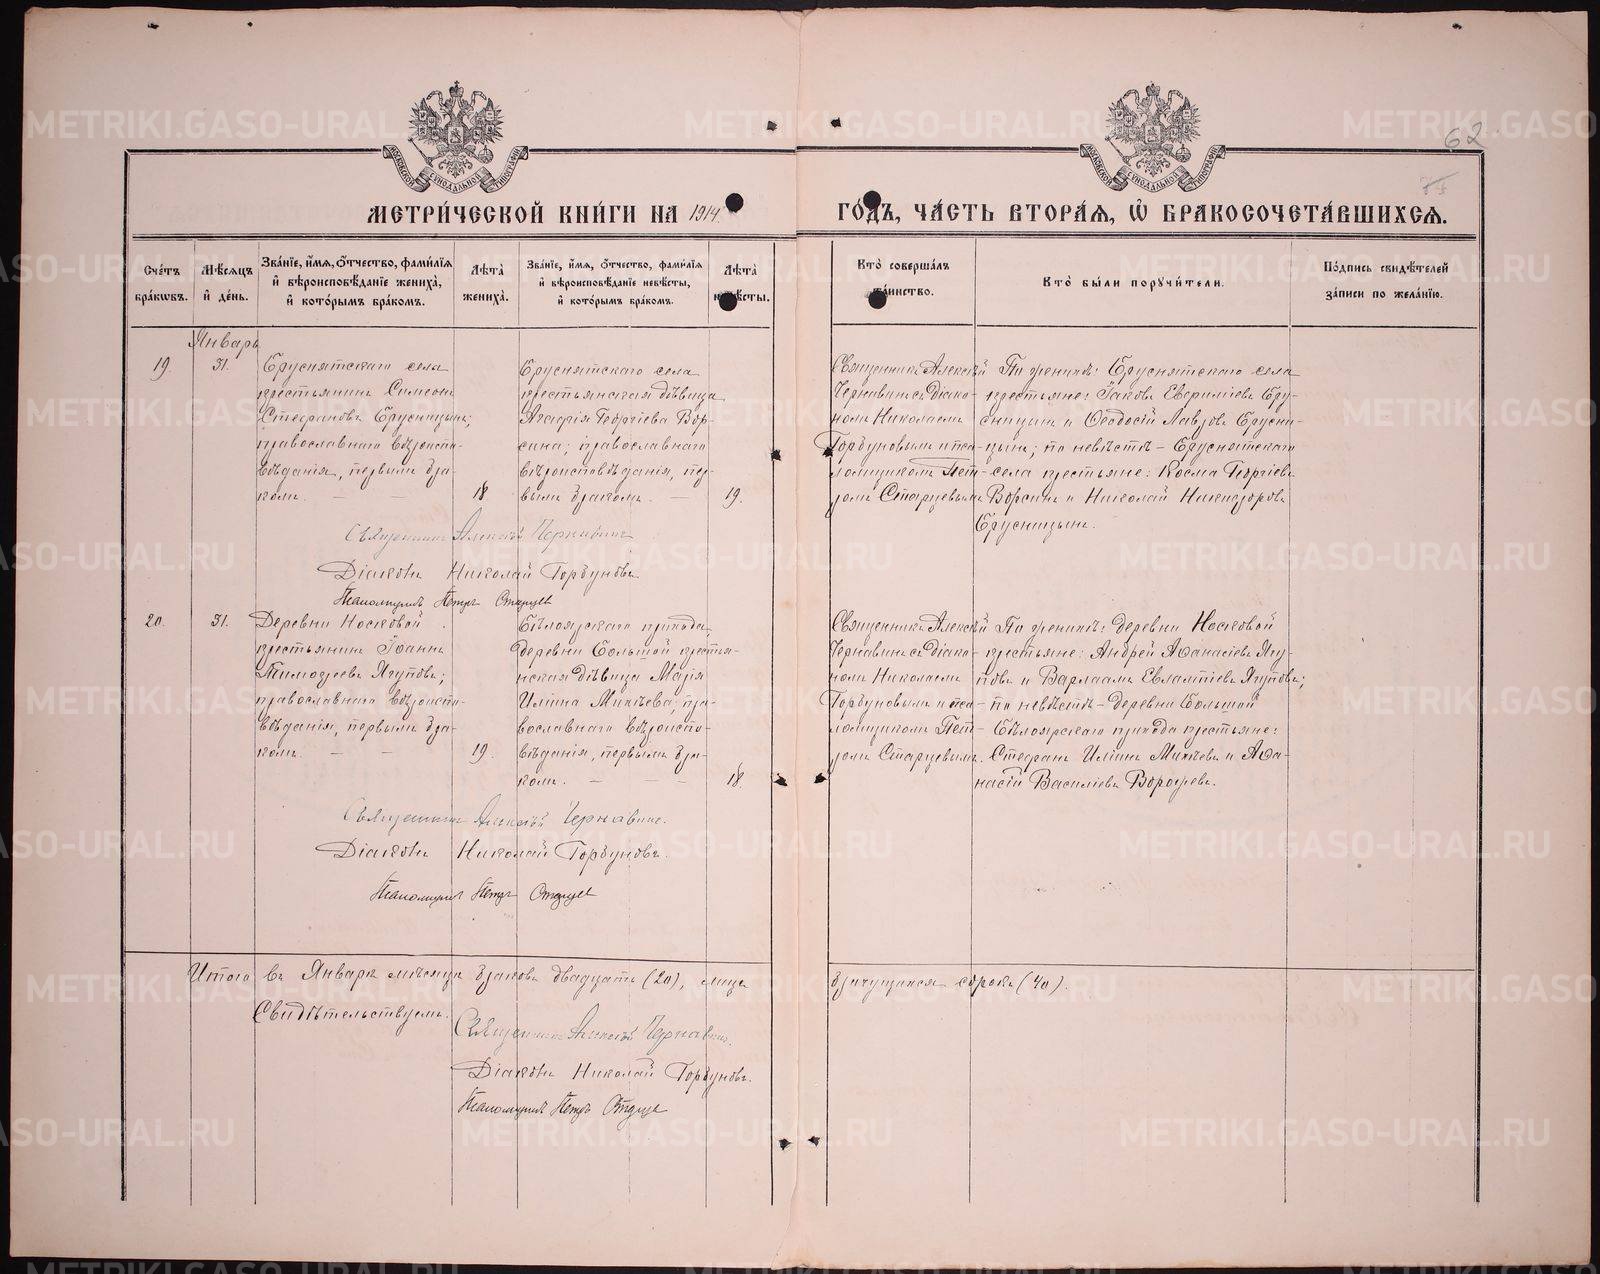 62
МОСКОВСКОЙ СУНОДАЛЬНОЙ ТИПОГРАФІИ
МОСКОВСКОЙ СУНОДАЛЬНОЙ ТИПОГРАФІИ
МЕТРИ́ЧЕСКОЙ КНИ́ГИ НА 1914.
ГО́ДЪ, ЧА́СТЬ ВТОРА́Я, Ѡ БРАКОСОЧЕТА́ВШИХСЯ.
Сче́тъ
бра́кѡвъ.
Мѣ́сяцъ
и́ де́нь.
Зва́ніе, и́мя, о́тчество, фами́лія
и́ вѣроисповѣ́даніе жениха́,
и́ кото́рымъ бра́комъ.
Лѣ́та
жениха́.
Зва́ніе, и́мя, о́тчество, фами́лія
и́ вѣроисповѣ́даніе невѣ́сты,
и́ кото́рымъ бра́комъ.
Лѣ́та
невѣ́сты.
Кто̀ соверша́лъ
та́инство.
Кто̀ бы́ли порꙋчи́тели.
По́дпись свидѣ́телей
за́писи по жела́нію.
Январь
19.
31.
Бруснятскаго села
крестьянинъ Симеонъ
Стефановъ Брусницынъ;
православнаго вѣроиспо-
вѣданія, первымъ бра-
комъ. — —
18
Бруснятскаго села
крестьянская дѣвица
Агафія Георгіева Вор-
сина; православнаго
вѣроисповѣданія, пер-
вымъ бракомъ. —
19.
Священникъ Алексѣй
Чернавинъ съ діако-
номъ Николаемъ
Горбуновымъ и пса-
ломщикомъ Пет-
ромъ Старцевымъ
По женихѣ: Бруснятскаго села
крестьяне: Іаковъ Евфиміевъ Бру-
сницынъ и Ѳеодосій Лавровъ Брусни-
цынъ; по невѣстѣ — Бруснятскаго
села крестьяне: Косма Георгіевъ
Ворсинъ и Николай Никифоровъ
Брусницынъ.
Священникъ Алексѣй Чернавинъ
Діаконъ Николай Горбуновъ.
Псаломщикъ Петръ Старцев
20.
31.
Деревни Носковой
крестьянинъ Іоаннъ
Тимоѳеевъ Ягуповъ;
православнаго вѣроиспо-
вѣданія, первымъ бра-
комъ. — —
19.
Бѣлоярскаго прихода,
деревни Большой кресть-
янская дѣвица Марія
Иліина Михѣева; пра-
вославнаго вѣроиспо-
вѣданія, первымъ бра-
комъ. — — —
18.
Священникъ Алексѣй
Чернавинъ съ діако-
номъ Николаемъ
Горбуновымъ и пса-
ломщикомъ Пет-
ромъ Старцевымъ.
По женихѣ: деревни Носковой
крестьяне: Андрей Аѳанасіевъ Ягу-
повъ и Варлаамъ Евлампіевъ Ягуповъ;
по невѣстѣ — деревни Большой
Бѣлоярскаго прихода крестьяне:
Стефанъ Иліинъ Михѣевъ и Аѳа-
насій Василіевъ
Священникъ Алексѣй Чернавинъ.
Діаконъ Николай Горбуновъ.
Псаломщикъ Петръ Старцев
Итого въ Январѣ мѣсяцѣ браковъ двадцать (20), лицъ брачущихся сорокъ (40).
Свидѣтельствуемъ.
Священникъ Алексѣй Чернавинъ.
Діаконъ Николай Горбуновъ.
Псаломщикъ Петръ Старцев
METRIKI.GASO-URAL.RU